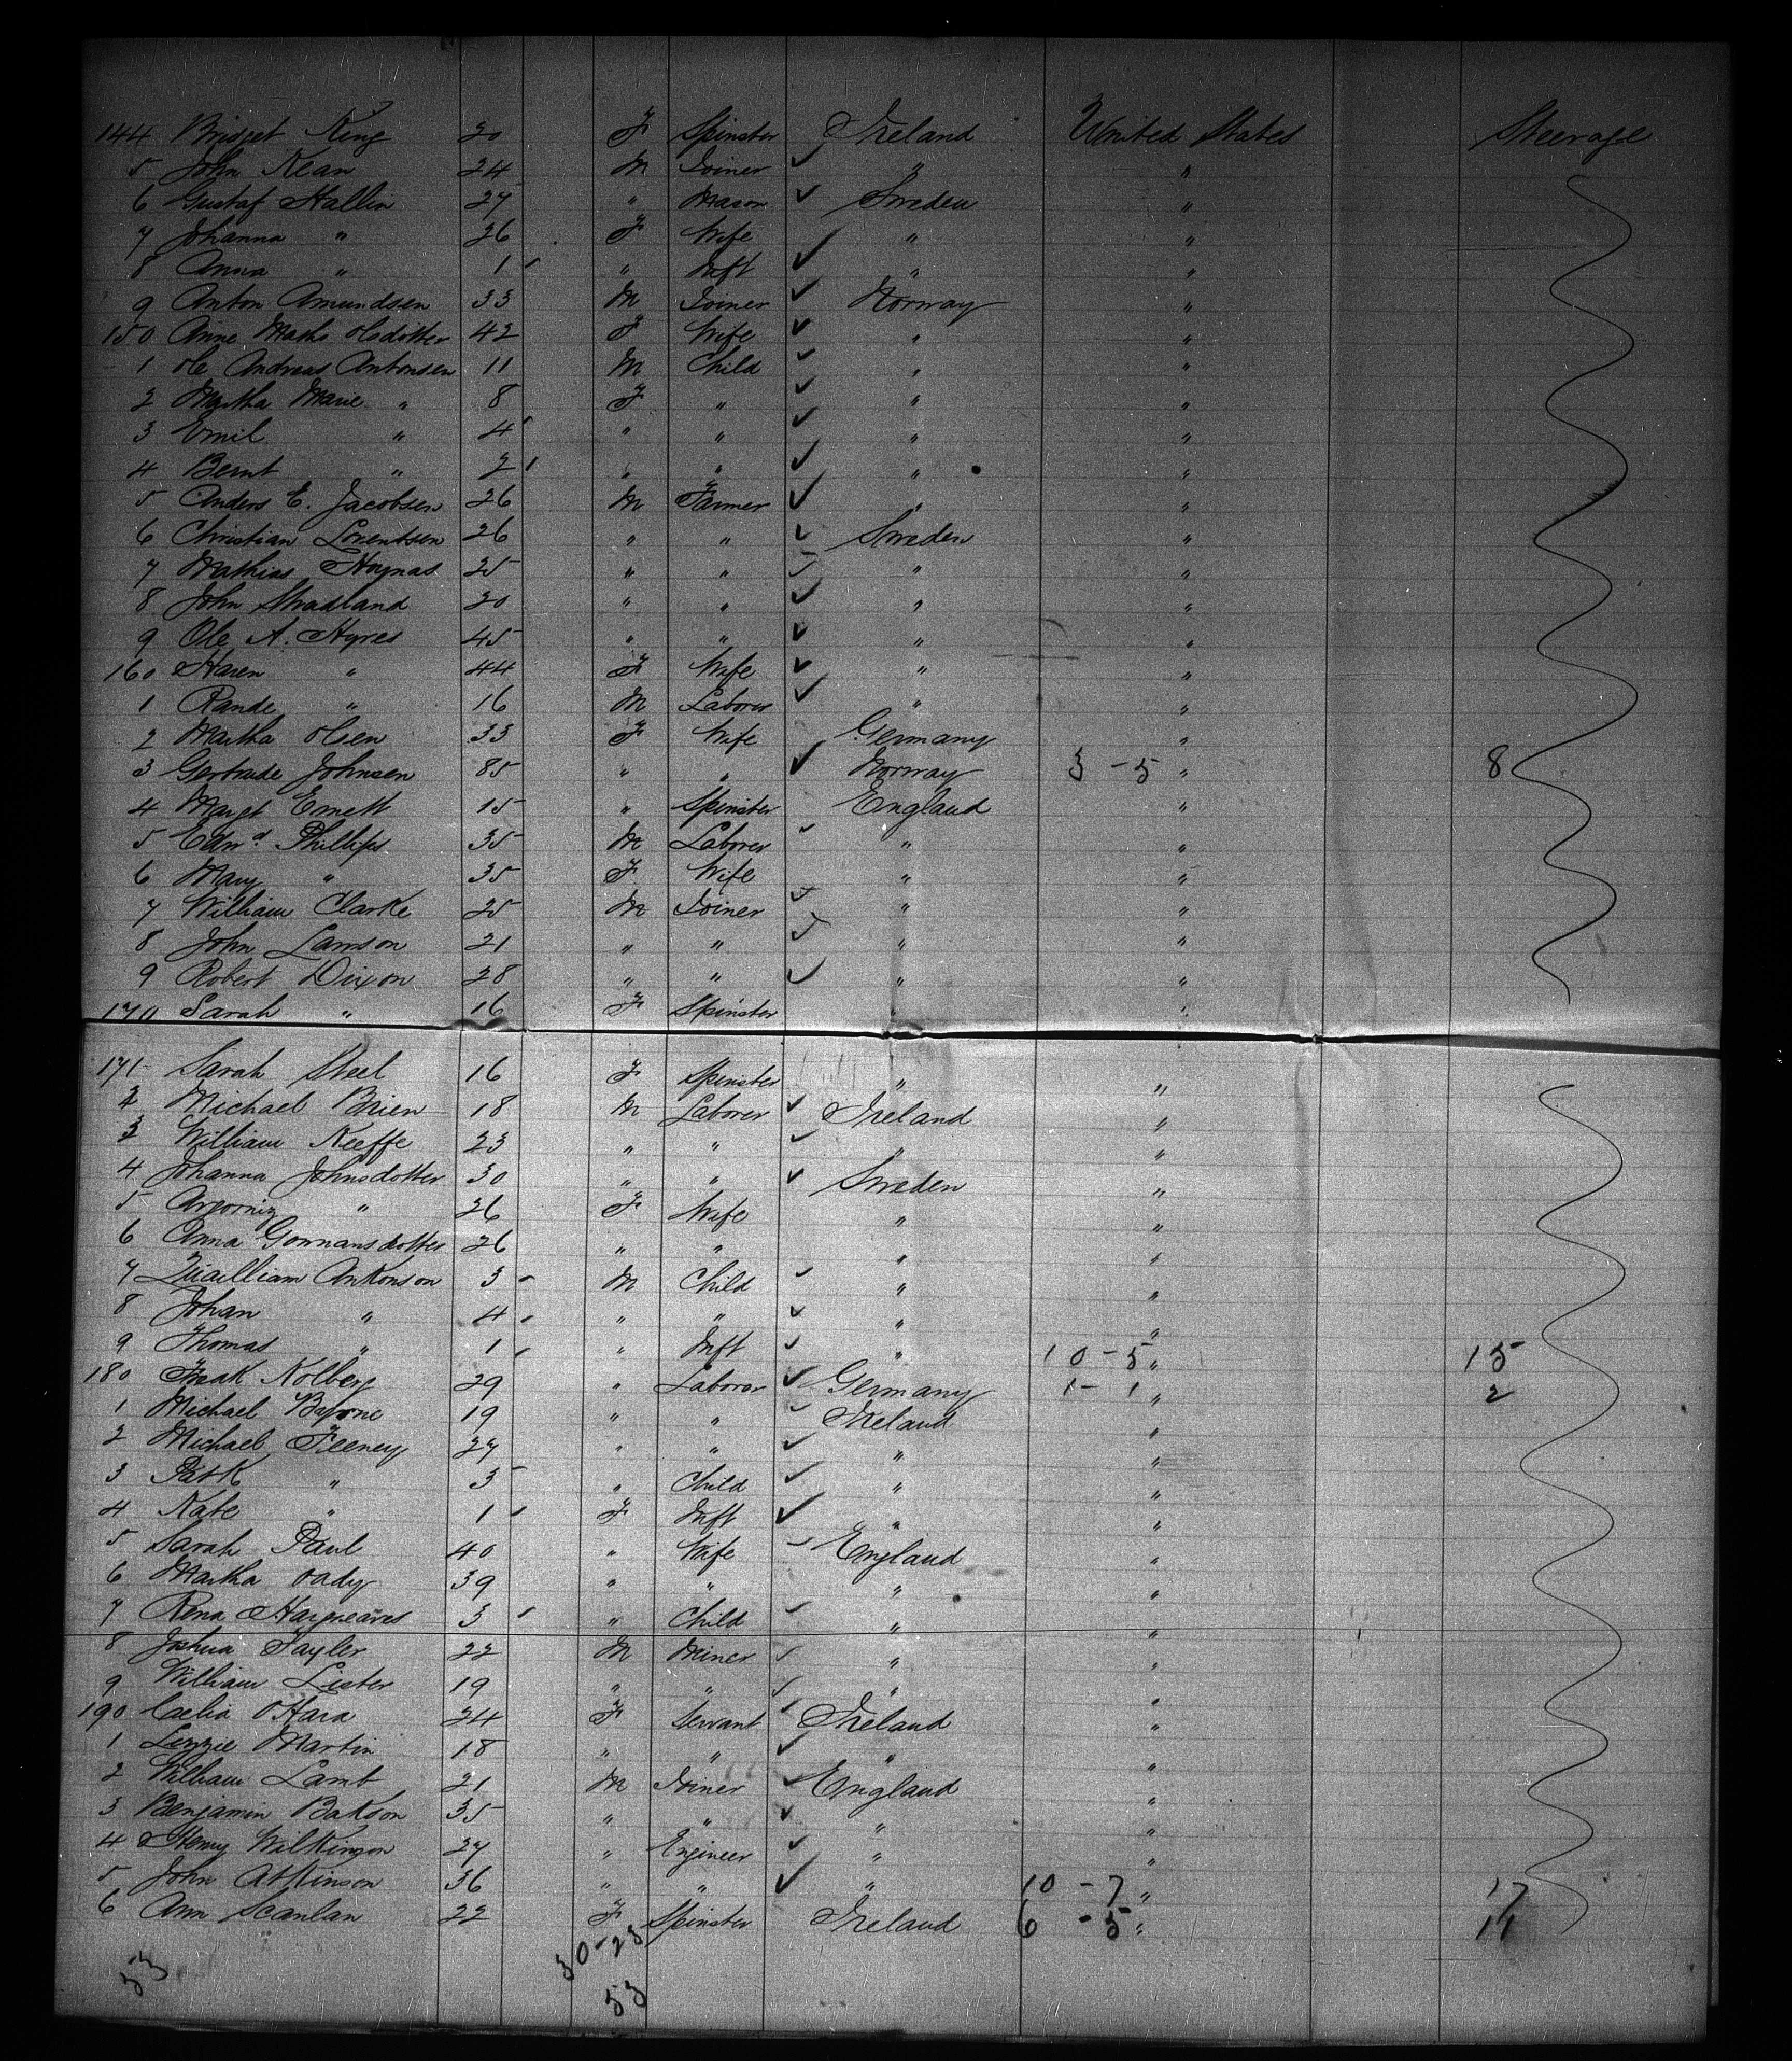 144 Bridget King 20 F Spinster Ireland United States Steerage
5 John Kean 24 M Joiner " "
6 Gustaf Hallin 27 " Mason Sweden "
7 Johanna " 26 F Wife " "
8 Anna " 1 " Inft " "
9 Anton Amundsen 33 M Joiner Norway "
150 Anne Maths Olsdotter 42 F Wife " "
1 Ole Andreas Antonsen 11 M Child " "
2 Martha Marie " 8 F " " "
3 Emil " 4 " " " "
4 Bernt " 2 " " " "
5 Anders E. Jacobsen 26 M Farmer " "
6 Christian Lorentsen 26 " " Sweden "
7 Mathias Hoynas 25 " " " "
8 John Stradland 20 " " " "
9 Ole A. Hyres 45 " " " "
160 Haren " 44 F Wife " "
1 Rande " 16 M Laborer " "
2 Martha Olsen 33 F Wife Germany "
3 Gertrude Johnsen 85 " " Norway 3-5 " 8
4 Margt Emett 15 " Spinster England "
5 Edwd Phillips 35 M Laborer " "
6 Mary " 35 F Wife " "
7 William Clarke 25 M Joiner " "
8 John Lawson 21 " " " "
9 Robert Dixon 28 " " " "
170 Sarah " 16 F Spinster " "
171 Sarah Steel 16 F Spinster " "
2 Michael Brien 18 M Laborer Ireland "
3 William Keeffe 23 " " " "
4 Johanna Johnsdotter 30 " " Sweden "
5 " 26 F Wife " "
6 Anna Gormansdotter 26 " " " "
7 Quilliam Ankonson 3 M Child " "
8 Johan " 4 " " " "
9 Thomas " 1 " Inft " 10-5 " 15
180 Kolberg 29 " Laborer Germany 1-1 " 2
1 Michael Byrone 19 " " Ireland "
2 Michael Feeney 27 " " " "
3 Patk " 3 " Child " "
4 Kate " 1 F Inft " "
5 Sarah Paul 40 " Wife England "
6 Martha Oady 39 " " " "
7 Rena Hargreaves 3 " Child " "
8 Joshua Tayler 22 M Miner " "
9 William Lister 19 " " " "
190 Caelia O'Hara 24 F Servant Ireland "
1 Lizzie Martin 18 " " " "
2 William Lamb 21 M Joiner England "
3 Benjamin Batson 35 " " " "
4 Henry Wilkinson 27 " Engineer " "
5 John Atkinson 36 " " " 10-7 " 17
6 Ann Scanlan 22 F Spinster Ireland 6-5 " 11
53 30-23
53